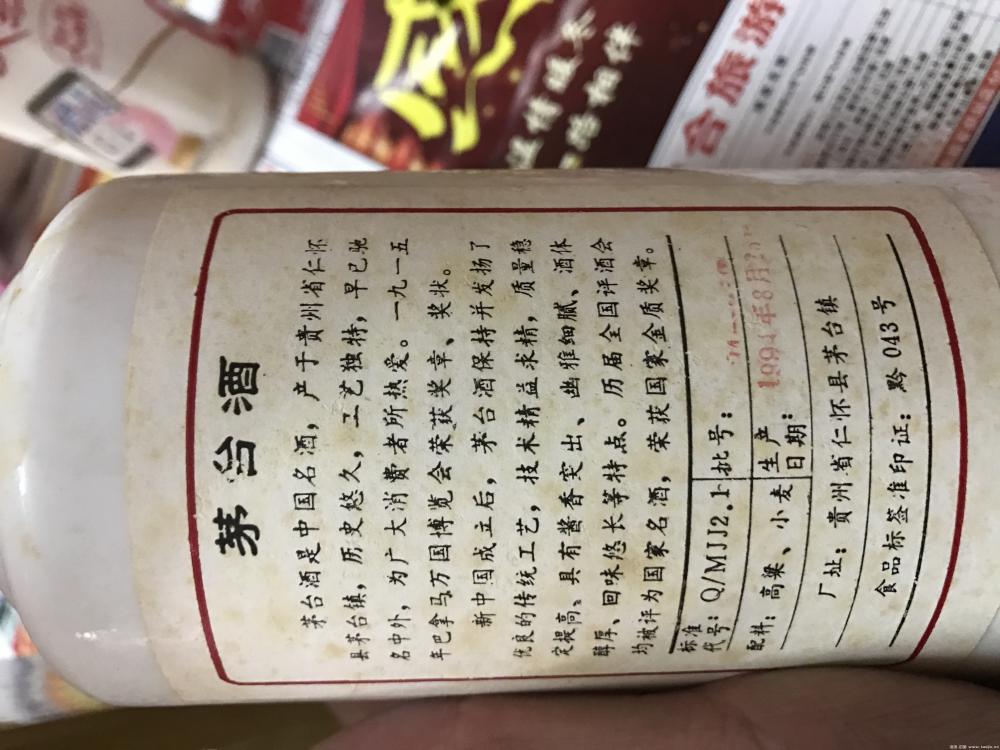 茅台酒
茅台酒是中国名酒，产于贵州省仁怀
县茅台镇，历史悠久，工艺独特，早已驰
名中外，为广大消费者所热爱。一九一五
年巴拿马万国博览会荣获奖章、奖状。
新中国成立后，茅台酒保持并发扬了
优良的传统工艺，技术精益求精，质量稳
定提高、具有酱香突出、幽雅细腻、酒体
醇厚、回味悠长等特点。历届全国评酒会
均被评为国家名酒，荣获国家金质奖章。
标准代号：Q/MJJ2.1 批号：
配料：高粱、小麦 生产日期：1994年8月
厂址：贵州省仁怀县茅台镇
食品标签准印证：黔043号
台旅游